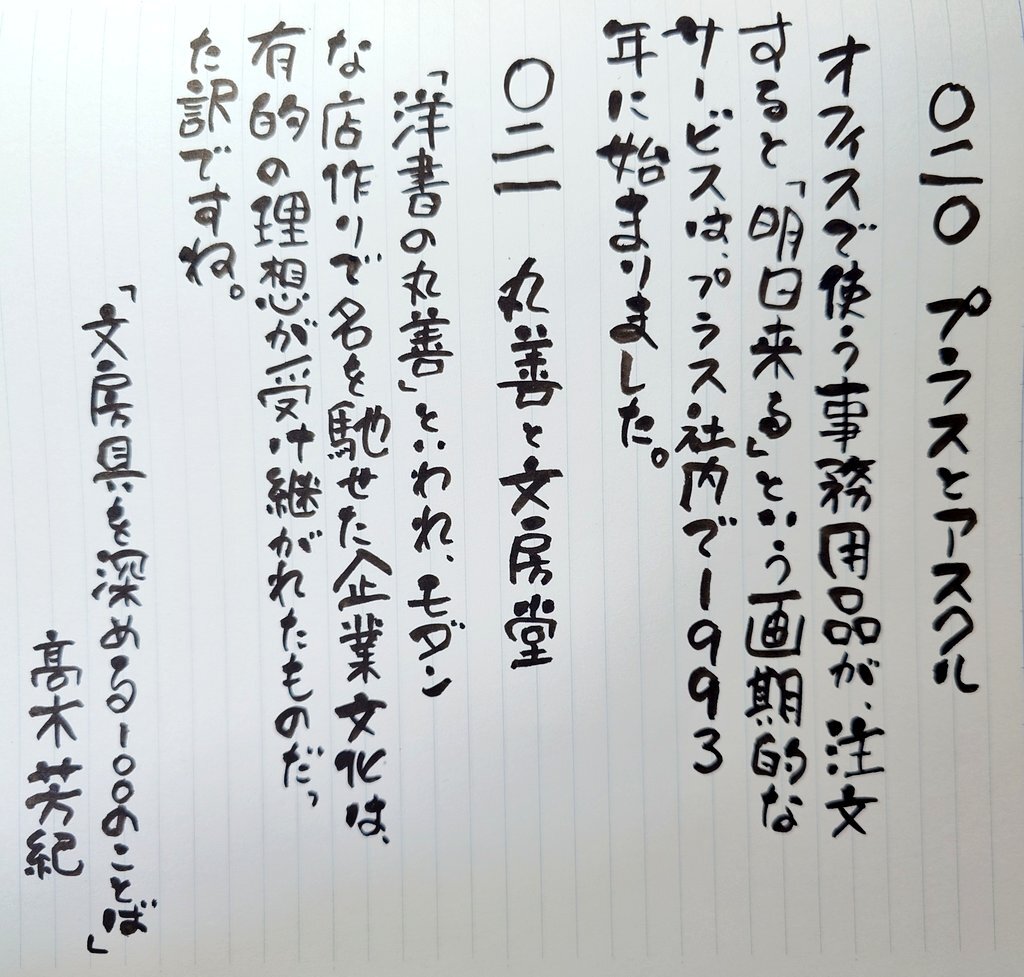 〇二〇 プラスとアスクル
オフィスで使う事務用品が、注文
すると「明日来る」という画期的な
サービスは、プラス社内で1993
年に始まりました。
〇二一 丸善と文房堂
「洋書の丸善」といわれ、モダン
な店作りで名を馳せた企業文化は、
有的の理想が受け継がれたものだっ
た訳ですね。
「文房具を深める100のことば」
髙木芳紀